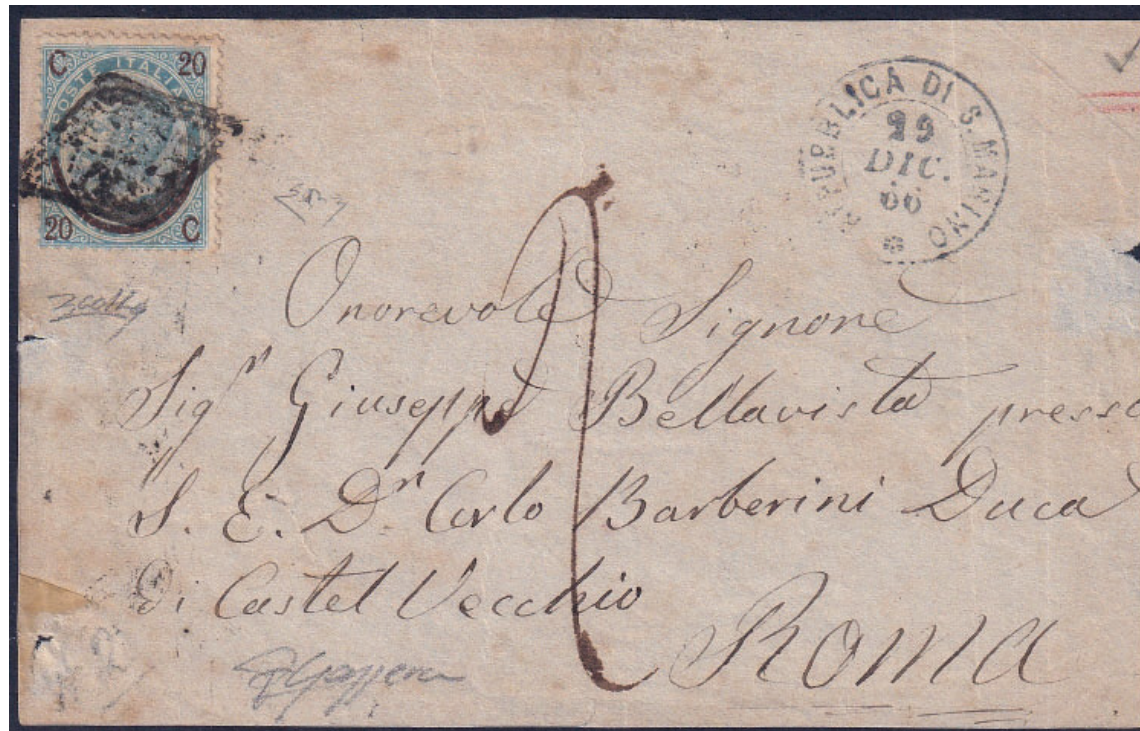 C 20
POSTE ITALIA
20 C
REPUBBLICA DI S. MARINO
29
DIC.
66
Onorevole Signore
Sigr Giuseppe Bellavista presso
S. E. Dn Carlo Barberini Duca
di Castel Vecchio
Roma